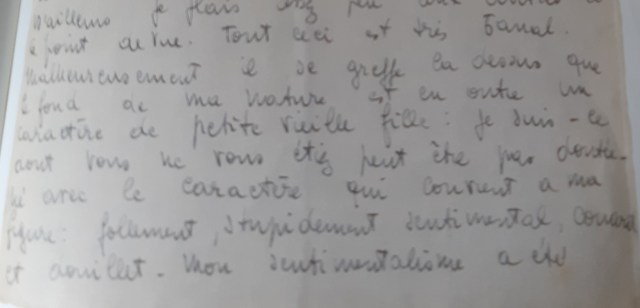 d'ailleurs je
le point de vue. Tout ceci est très banal.
Malheureusement il se greffe la dessus que
le fond de ma nature est en outre un
caractère de petite vieille fille : je suis - ce
dont vous ne vous étiez peut être pas doute -
né avec le caractère qui convient a ma
figure : follement, stupidement sentimental,
et douillet - Mon sentimentalisme a été